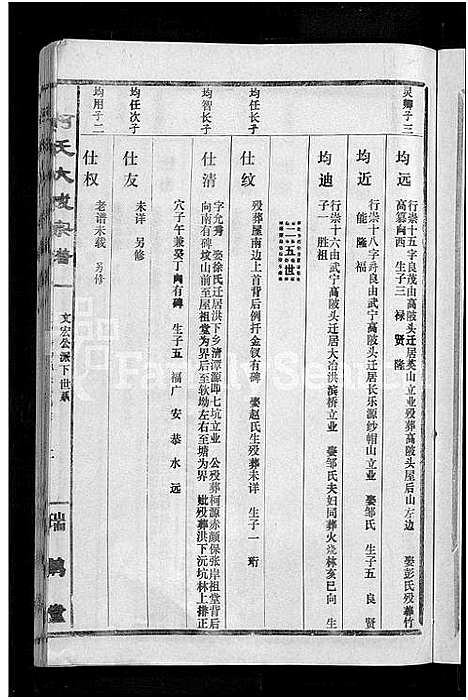 灵卿子三
均远
行崇十五字良茂由高陂头迁居英山立业 殁葬高陂头屋后山左边 娶彭氏殁葬竹
高墓向西 生子三 禄 贤 隆
均近
行崇十八字寻良由武宁高陂头迁居长乐源纱帽山立业 娶邹氏 生子五 良 贤
能 隆 福
均迪
行崇十六由武宁高陂头迁居大冶洪滨桥立业 娶邹氏夫妇同葬火烧林亥巳向 生
子一 胜祖
二五世
均任长子
仕纹
殁葬屋南边上首背后例扦金钗有碑 娶赵氏生殁葬未详 生子一 珩
均智长子
仕清
字允秀 娶徐氏迁居下乡清潭源即七坑立业 公殁葬柯源赤颜保张岸祖堂背后
向南有碑坟山前至屋祖堂为界后至软坳左右至塘为界 妣殁葬洪下沅坑林上排正
穴子午兼癸丁向有碑 生子五 福广 安 恭 水 远
均任次子
仕友
未详 另修
均用子二
仕权
老谱未载 另修
柯氏大成宗谱
文宏公派下世系
瑞鹊堂
FamilySearch